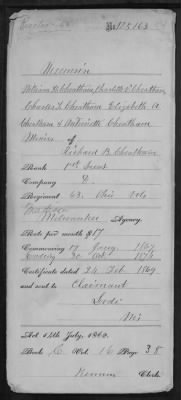 No. 125,163
Minor in
Charlotte V. Cheatham
Charles L. Cheatham Elizabeth A.
Cheatham & Antoinette Cheatham
Minors of
Richard B. Cheatham
Rank
Company D.
Regiment 63. Ohio Vols
Milwaukee Agency.
Rate per month $17
Commencing 17 1867
Ending 30 Oct 1874
Certificate dated 24 Feb 1869
and sent to Claimant
Lodi
Wis
Act 14th July, 1862.
Book C Vol. 16 Page 38
Clerk.